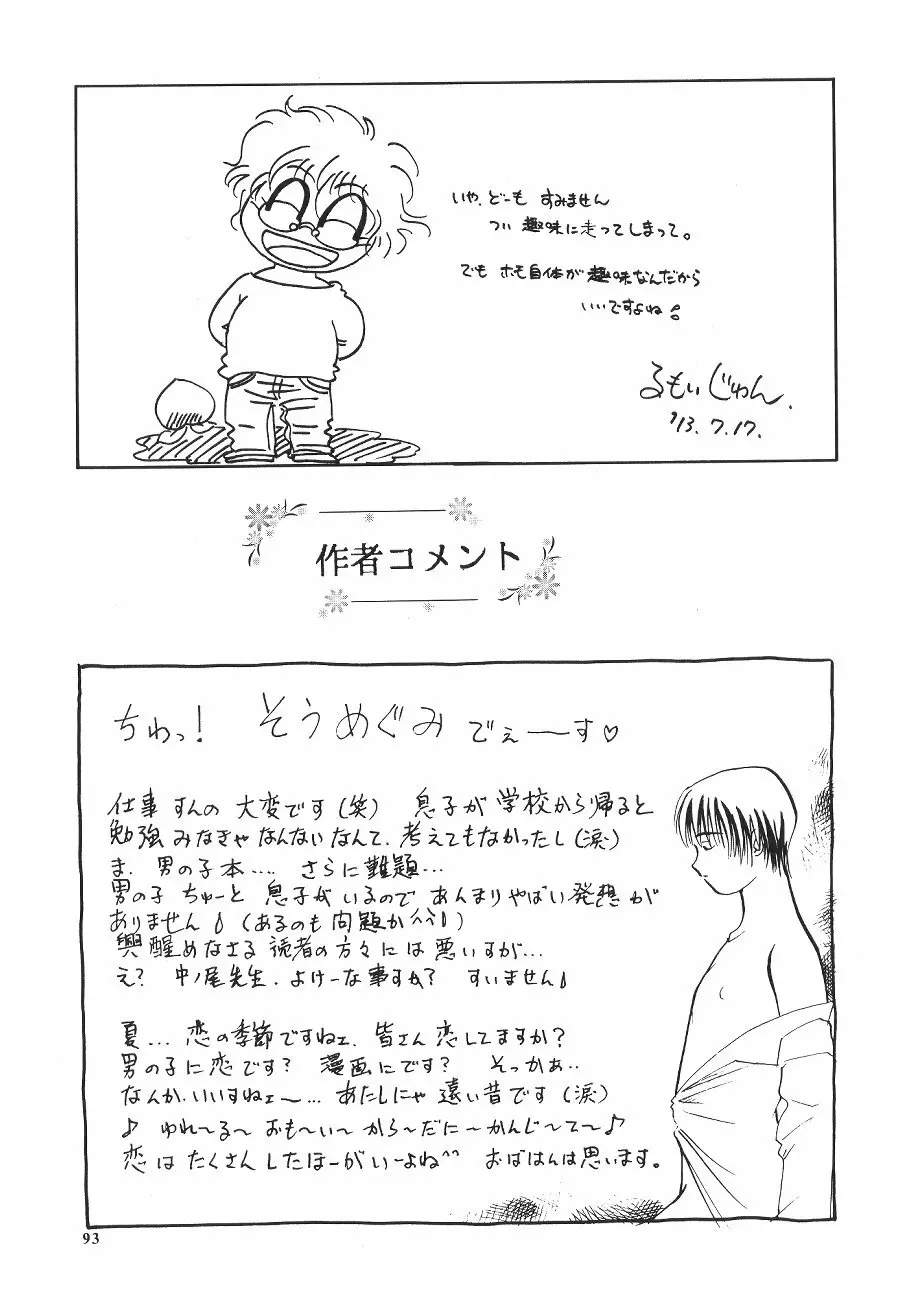 いや、どーも すみません
つい 趣味に走ってしまって。
でも ホモ自体が趣味なんだから
いいですよね!
るもいじゅん.
'13.7.17.
作者コメント
ちわっ! そうめぐみ でぇーーす♡
仕事 すんの 大変です(笑) 息子が学校から帰ると
勉強みなきゃなんないなんて、考えてもなかったし(涙)
ま、男の子本‥‥ さらに難題…
男の子 ちゅーと 息子がいるので あんまりやばい発想が
ありません!(あるのも問題か^^!)
興醒めなさる 読者の方々には悪いすが…
え? 中ノ尾先生、よけーな事すか? すいません!
夏… 恋の季節ですねェ、皆さん恋してますか?
男の子に恋です? 漫画にです? そっかぁ‥
なんか、いいすねェ〜… あたしにゃ 遠い昔です(涙)
♪ ゆれ〜る〜 おも〜い〜 から〜だに〜かんじ〜て〜♪
恋は たくさん したほーがいーよね^^ おばはんは思います。
93